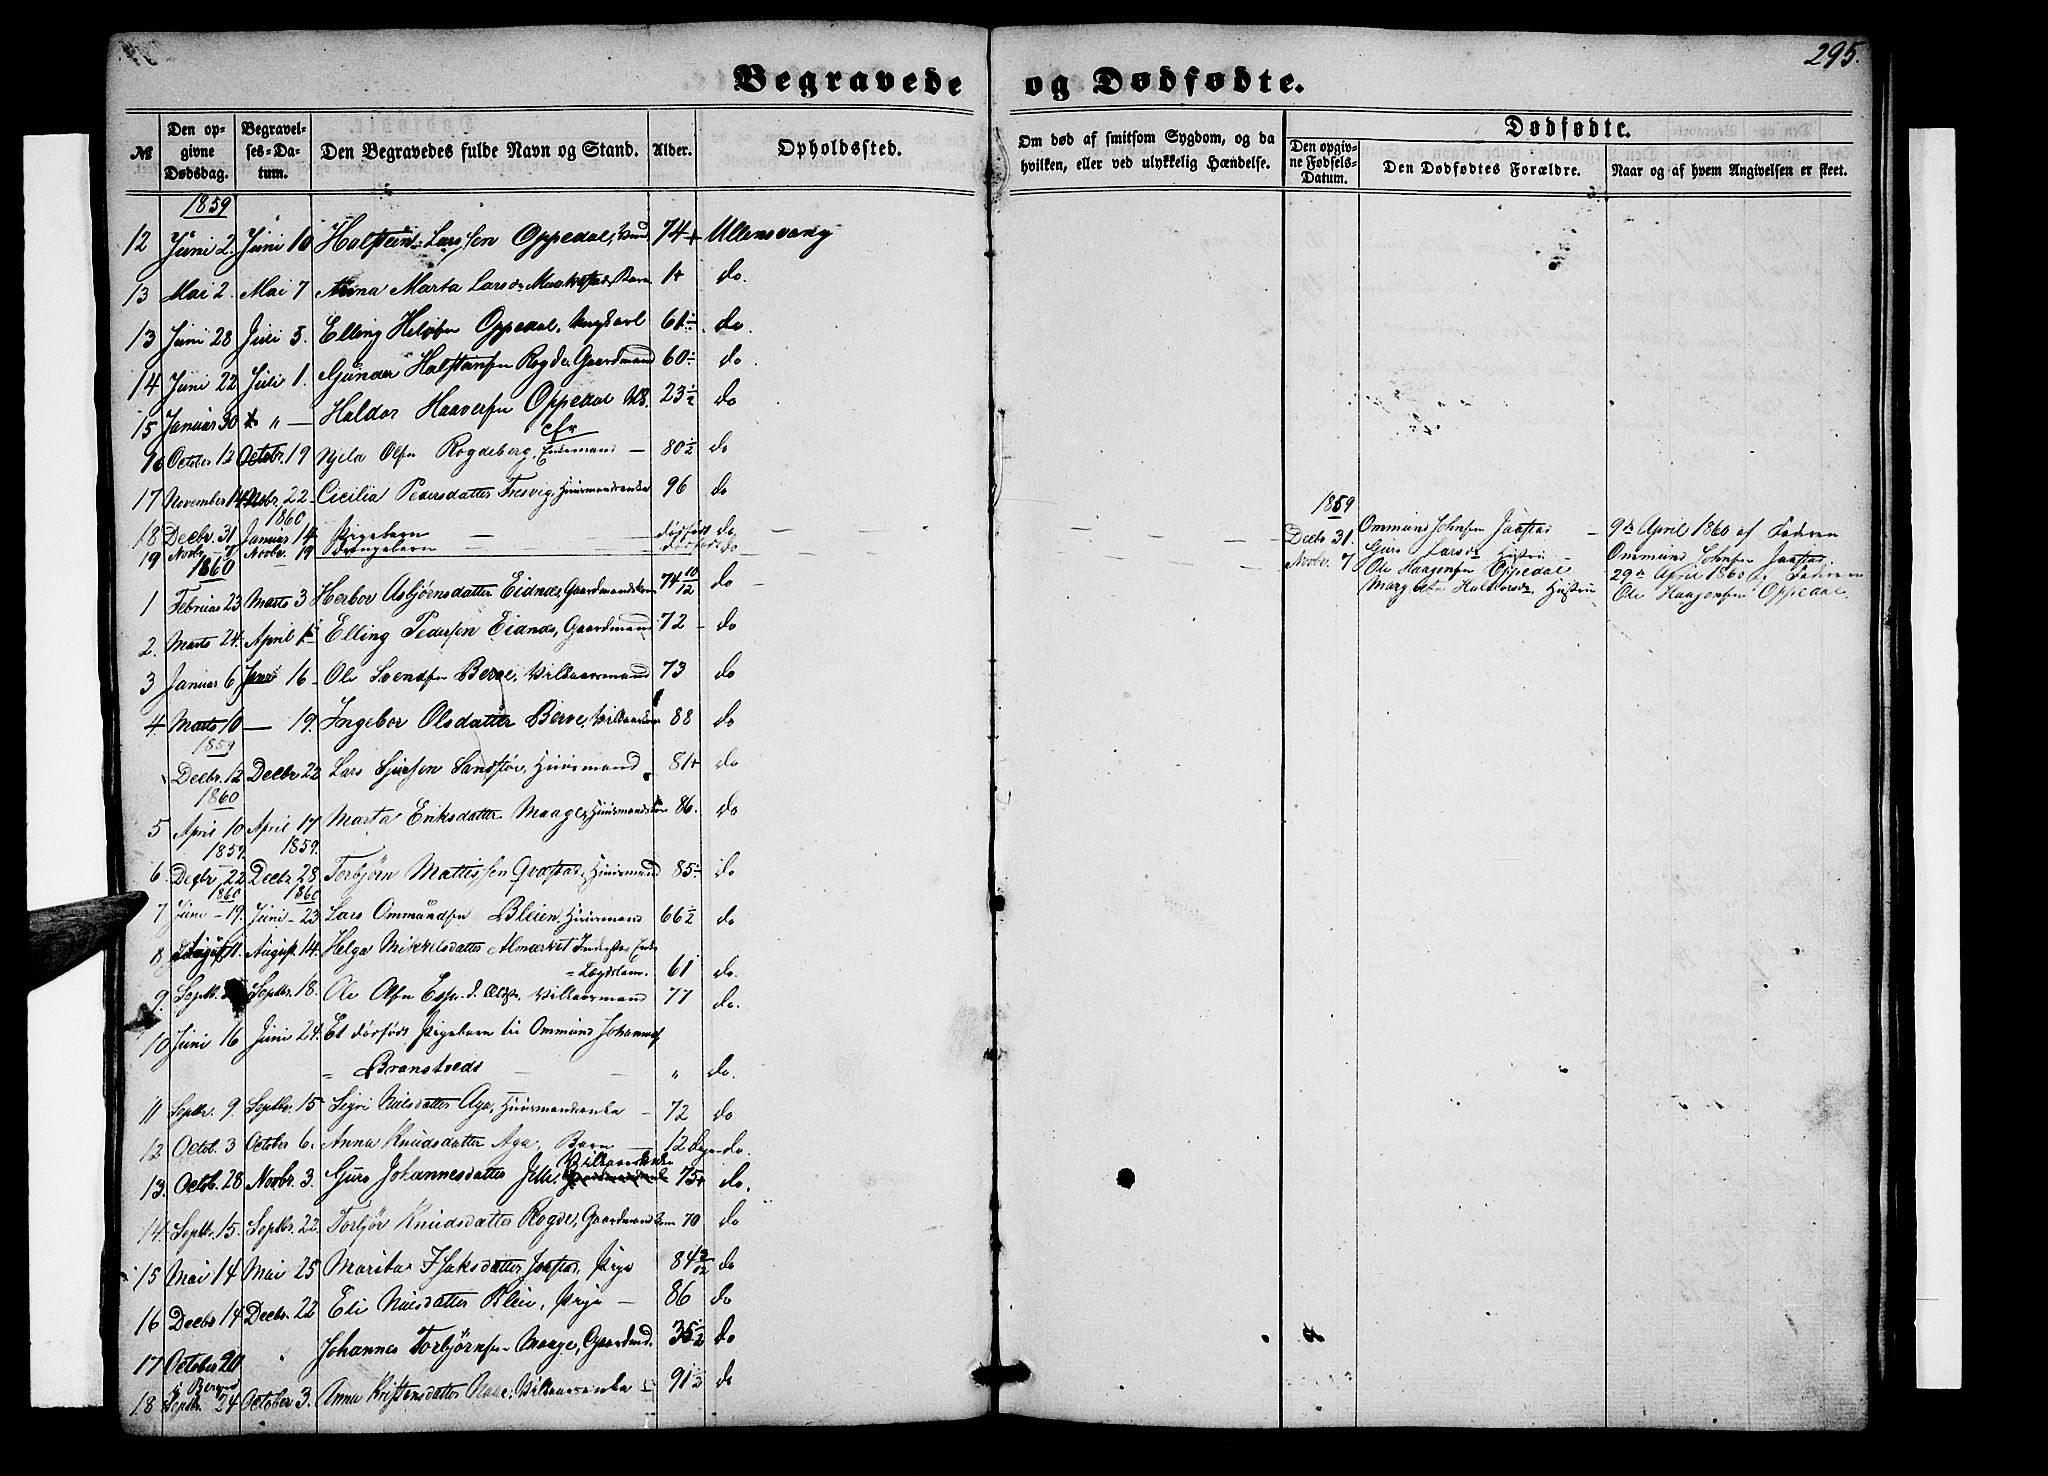 295.
Begravede og Dødfødte.
№ Den opgivne Dødsdag. Begravelses-Datum. Den Begravedes fulde Navn og Stand. Alder. Opholdssted. Om død af smitsom Sygdom, og da hvilken, eller ved ulykkelig Hændelse. Dødfødte. Den opgivne Fødsels-Datum. Den Dødfødtes Forældre. Naar og af hvem Angivelsen er skeet.
1859
12 Juni 2. Juni 10 Halstein Larssen Oppedal, 74 Ullensvang
13 Mai 2. Mai 7 Anna Marta Larsd. Maakestad, Barn 1 do.
13 Juni 28 Juli 3. Elling Oppedal, Ungkarl 61 do.
14 Juni 22 Juli 1. Gunder Halstensen Rogde, Gaardmand 60 do
15 Januar 30 " — Haldor Haaversen Oppedal 23½ do
cfr
16 October 12 Octobr. 19 Njela Olsen Rogdeberg, — 80½ do
17 November 14 Nobr. 22 Cicilia Pedersdatter Tresvig, Huusmandsenke 96 do
1860
18 Decbr. 31 Januar 14 Pigebarn — dødfødt do — — 1859 Decbr. 31. Ommund Johnsen Jaastad Guro Larsdr. Hustru — 9de April 1860 af Faderen Ommund Johnsen Jaastad
19 Novbr. 7 Novbr. 19 Drengebarn — dødfødt do — — Novbr. 7 Ole Haagensen Oppedal Margreta Haldorsdr. Hustru 29de April 1860 Faderen Ole Haagensen Oppedal.
1860
1 Februar 23 Marts 3 Herbor Asbjørnsdatter Eidnes, Gaardmandskone 74 10/12 do —
2. Marts 24. April Elling Pedersen Eidnes, Gaardmand 72 — do
3 Januar 6 Janr. 16 Ole Svendsen Berve, Vilkaarsmand 73 do
4. Marts 10 — 19. Ingebor Olsdatter Berve, 88 do
1859
Decbr. 12 Decbr 22 Lars Sjursen Sandstø, Huusmand 81 do
1860
5 April 10 April 17 Marta Eriksdatter Maage, Huusmandskone 86. do
1859. 1859.
6. Decbr 22 Decbr. 28 Torbjørn Mattissen Qvastad, Huusmand 85 do
1860 1860
7 Juni 19. Juni 23 Lars Ommundsen Bleien, Huusmand 66½ do
8 August 11. August. 14. Helga Mikkelsdatter Almærket
= Lægdslem. 61 do.
9. Septbr. Septbr. 18. Ole Olsen Espe, Vilkaarsmand 77 do.
10 Juni 16 Juni 24. Et dødfødt Pigebarn til Ommund Johannes
= Branstveds — — " do.
11 Septbr. 9 Septbr. 15 Sigri Nielsdatter Aga, Huusmandsenke — 72 do
12 Octob. 3 October 6. Anna Knudsdatter Aga, Barn 12 Dage do.
13. Octob. 28 Novbr. 3. Guro Johannesdatter Jelle, Vilkaarsenke 75 do.
14. Septbr. 15. Septbr. 22. Torbjør Knudsdatter Rogde, Gaardmandskone 70 do
15 Mai 14 Mai 25 Marita Isaksdatter Jaastad, Pige 84 2/12 do
16 Decbr 14 Decbr. 22 Eli Nielsdatter Bleie, Pige — 86 do
17 October 20 Johannes Torbjørnsen Maage, Gaardmd. 35½ do
i Bergen
18 Septbr. 24 October 3. Anna Kristensdatter, Vilkaarsenke 91½ do